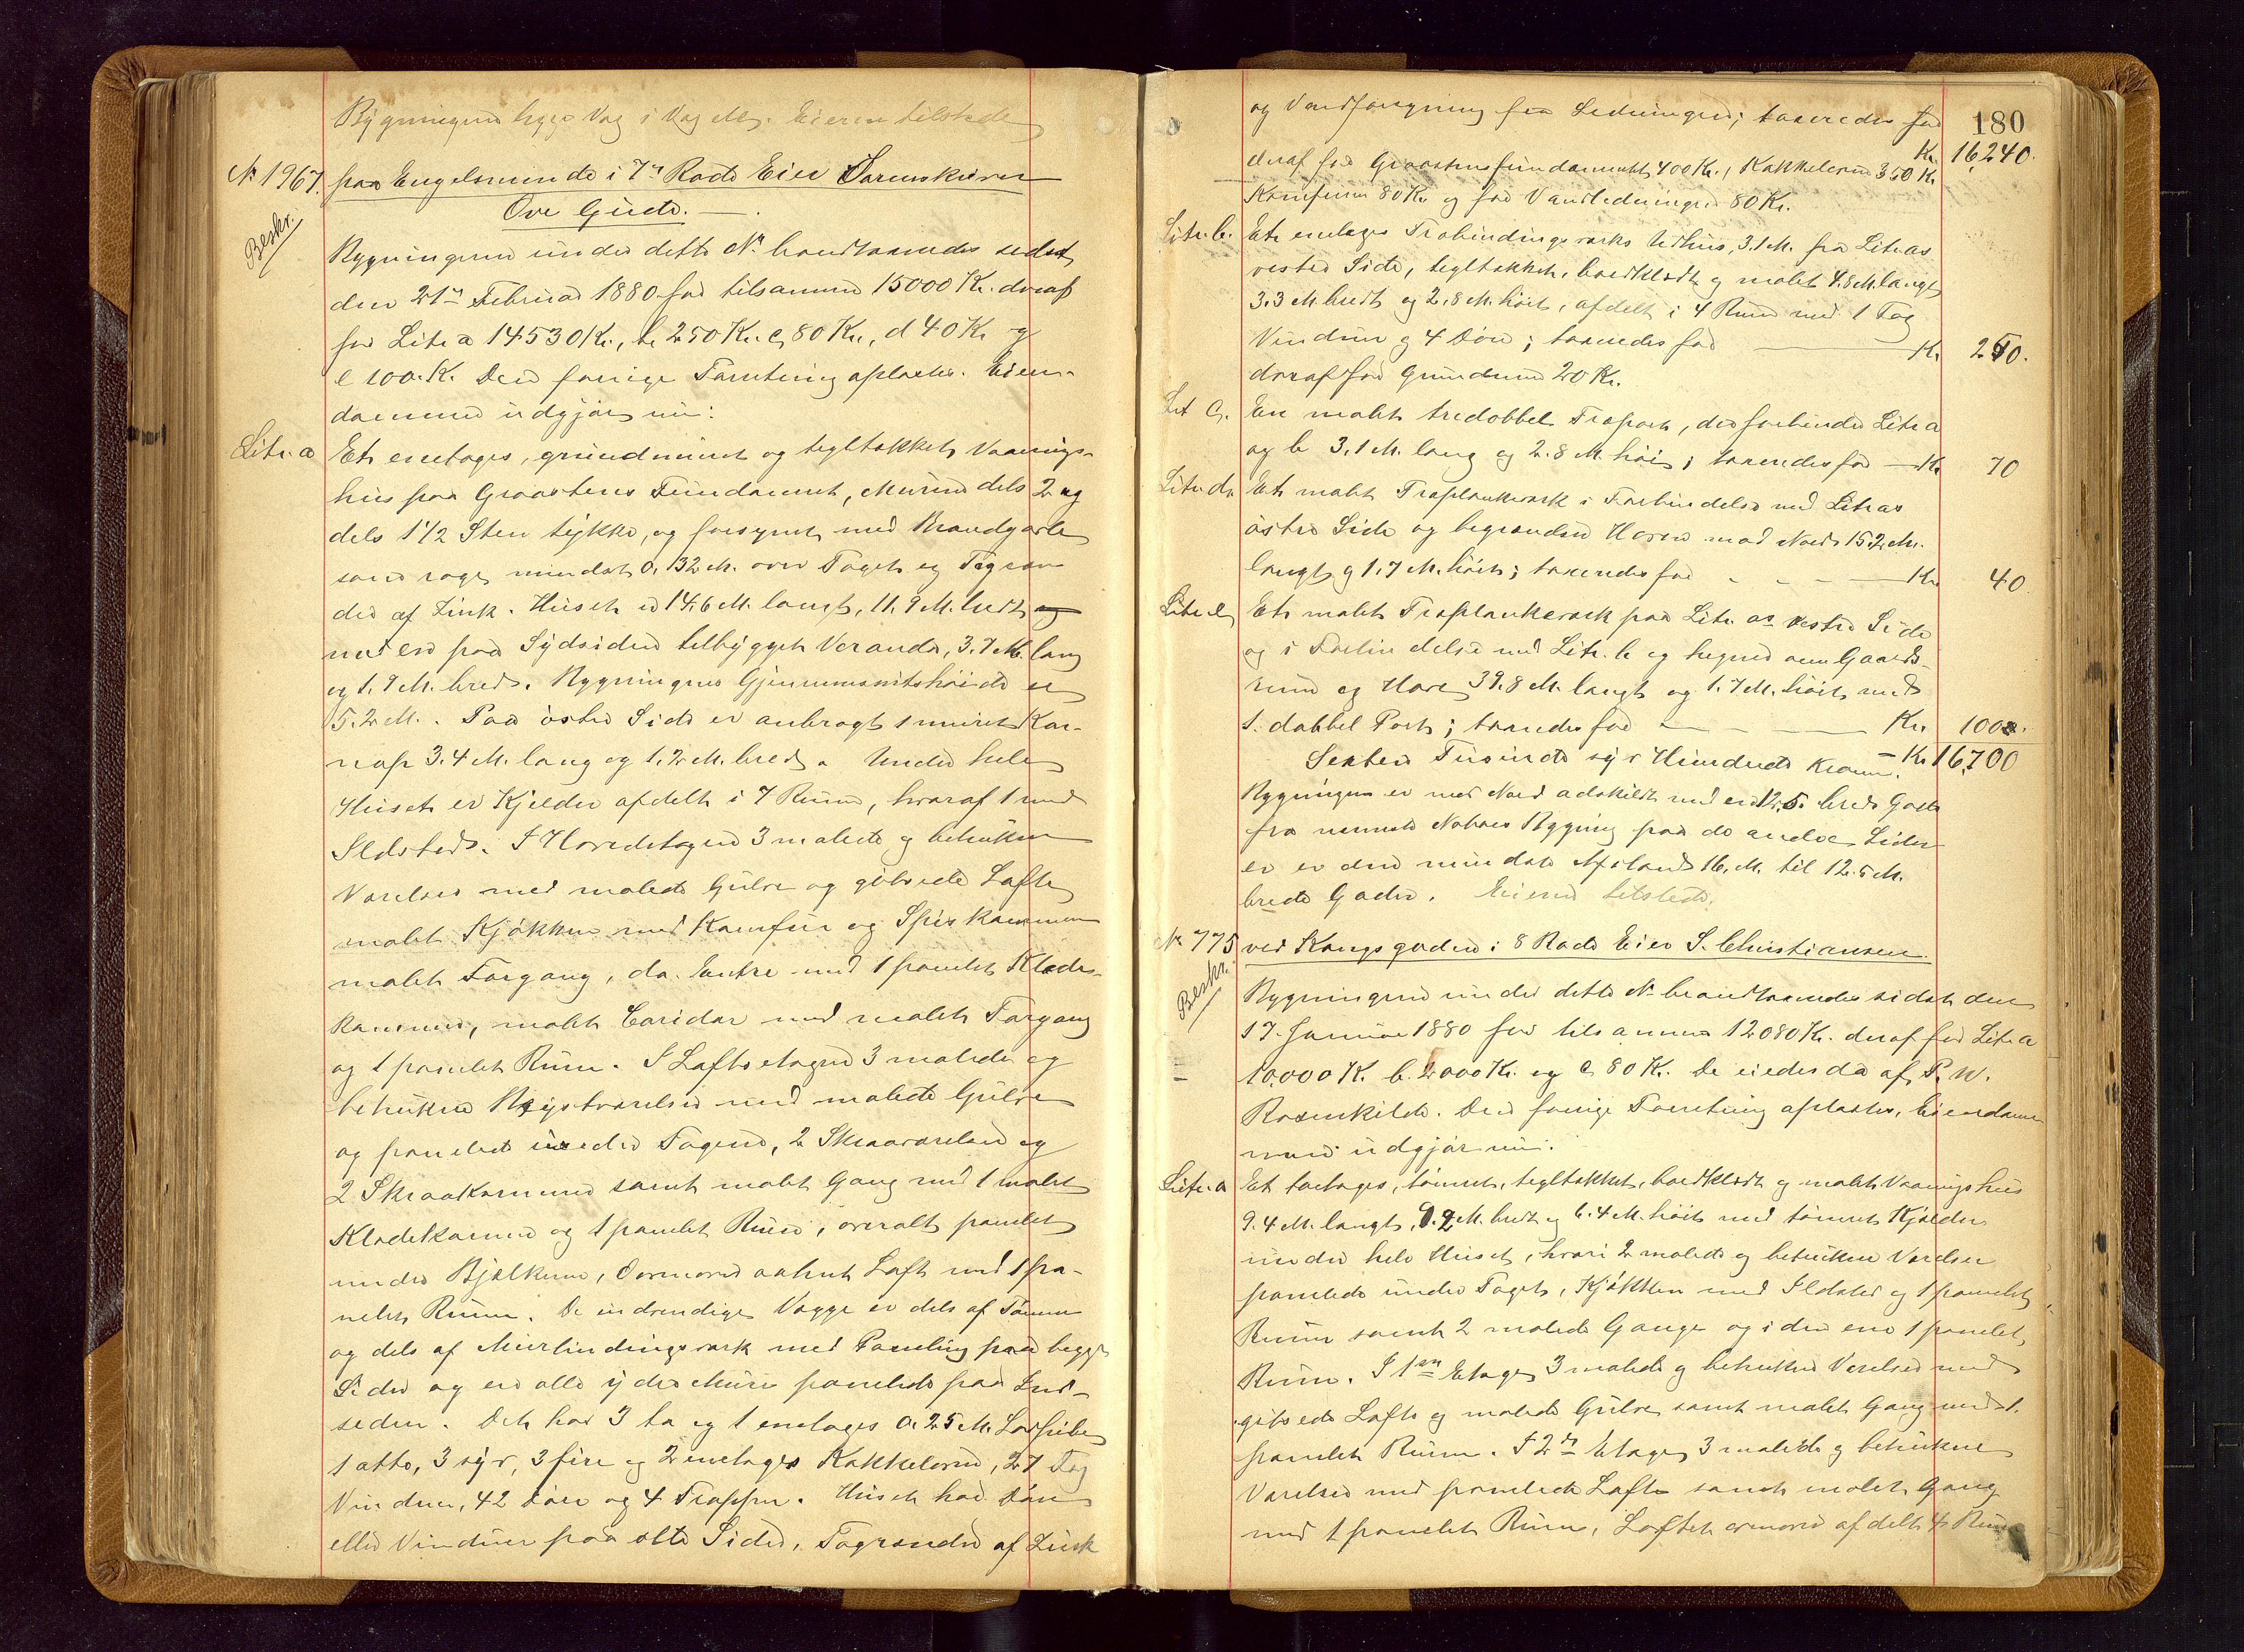 Bygningerne ligge Væg i Væg etc. Eieren tilstede
No 1967. paa Engelsminde i 7de Rode Eier Sorenskriver
Ove Gude.
Beskr.
Bygningerne under dette No brandtaxeredes sidst
den 21de Februar 1880 for tilsammen 15000 Kr. deraf
for Litr a 14530 Kr., b 250 Kr. c, 80 Kr., d 40 Kr og
e 100. Kr. Den forrige Forretning aflæstes. Eien-
dommene udgjør nu:
Litr. a Et enetages, grundmuret og tegltækket Vaanings-
hus paa Graastens Fundament, Murene dels 2 og
dels 1 1/2 Sten tykke, og forsynet med Brandgavle
som rage mindst 0,132 M. over Taget og Tagren
der af Zink. Huset er 14,6 M. langt, 11,9 M. bredt og
med en paa Sydsiden tilbygget Veranda, 3.7 M. lang
og 1.9 M. bred. Bygningens Gjennemsnitshøide er
5.2 M. Paa østre Side er anbragt 1 muret Kar-
nap 3.4 M. lang og 1.2 M. bred. Under hele
Huset er Kjelder afdelt i 7 Rum, hvoraf 1 med
Ildsted. I Hovedetagen 3 malede og betrukne
Værelser med malede Gulve og gibsede Lofte
malet Kjøkken med Komfur og Spiskammer
malet Forgang, do. Entre med 1 panelet Klædes-
kammer, malet Coridor med malet Forgang
og 1 panelet Rum. I Loftsetagen 3 malede og
betrukne Kvistværelser med malede Gulve
og panelet under Tagene, 2 Skraaværelser og
2 Skraakammere samt malet Gang med 1 malet
Klædekammer og 1 panelet Rum, overalt panelet
under Bjælkerne, Ovenover aabent Loft med 1 pa-
nelet Rum. De indvendige Vægge er dels af Tømmer
og dels af Murbindingsværk med Paneling paa begge
Sider og ere alle ydre Mure panelede paa Ind-
siden. Det har 3 to og 1 enetages a 25 M. Lodpiber
1 otte, 3 syv, 3 fire og 2 enetages Kakkelovne, 27 Fag
Vinduer, 42 Døre og 4 Trapper. Huset har Døre
eller Vinduer paa alle Sider. Tagrender af Zink
180
og Vandforsyning fra Ledningen; taxeredes for
Kr. 16,240.
deraf for Graastensfundamentet 400 Kr., Kakkelovne 350 Kr
Komfuren 80 Kr og for Vandledningen 80 Kr.
Litr. b. Et enetages Træbindingsværks Udhus, 3.1 M. fra Litr as
vestre Side, tegltækket, bordklædt og malet 4.8 M. langt
3.3 M. bredt og 2.8 M. høit, afdelt i 4 Rum med 1 Fag
Vinduer og 4 Døre; taxeredes for Kr 250.
deraf for Grunden 20 Kr.
Lit c. En malet tredobbel Træport, der forbinder Litr a
og b 3.1 M. lang og 2.8 M. høi; taxeredes for Kr 70
Litr. d. Et malet Træplankeværk i Forbindelse med Litr as
østre Side og begrændser Haven mod Nord 15.2 M.
langt og 1.7 M. høit; taxeredes for Kr 40
Litr. e Et malet Træplankeværk paa Litr. as vestre Side
og i Forbindelse med Litr. b og hegner om Gaards-
rum og Have 39.8 M. langt og 1.7 M. høit med
1. dobbel Port; taxeredes for Kr. 100.
Sexten Tusinde syv Hundrede Kroner. Kr 16,700
Bygningen er mod Nord adskildt med en 12,5. bred Gade
fra nærmeste Naboes Bygning paa de andre Sider
er er den mindste Afstand 16, M. til 12.5 M.
brede Gader. Eieren tilstede.
No 775. ved Kongsgaden i 8 Rode Eier S. Christiansen.
Beskr.
Bygningerne under dette No brandtaxeredes sidst den
17. Januar 1880 for tilsammen 12080 Kr. deraf for Litr a
10.000 Kr. b. 2000 Kr. og c 80 Kr. De eiedes da af P. W.
Rosenkilde. Den forrige Forretning aflæstes, Eiendom-
mene udgjør nu:
Litr. a Et toetages, tømret, tegltækket, bordklædt og malet Vaaningshus
9.4 M. langt, 9.2 M. bredt og 6.4 M. høit med tømret Kjælder
under hele Huset, hvori 2 malede og betrukne Værelser
panelede under Taget, Kjøkken med Ildsted og 1 panelet
Rum samt 2 malede Gange og i den ene 1 panelet
Rum. I 1ste Etage, 3 malede og betrukne Værelser med
gibsede Lofte og malede Gulve samt malet Gang med 1.
panelet Rum. I 2den Etage, 3 malede og betrukne
Værelser med panelede Lofte samt malet Gang
med 1 panelet Rum, Loftet ovenover afdelt 4 Rum